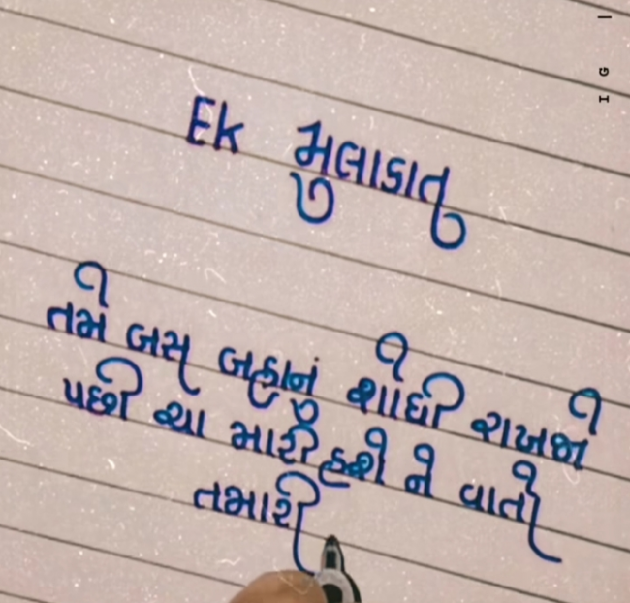 Ek મુલાકાત
તમે બસ બહાનું શોધી રાખજો
પછી ચા મારી હશે ને વાતો
તમારી
IG |